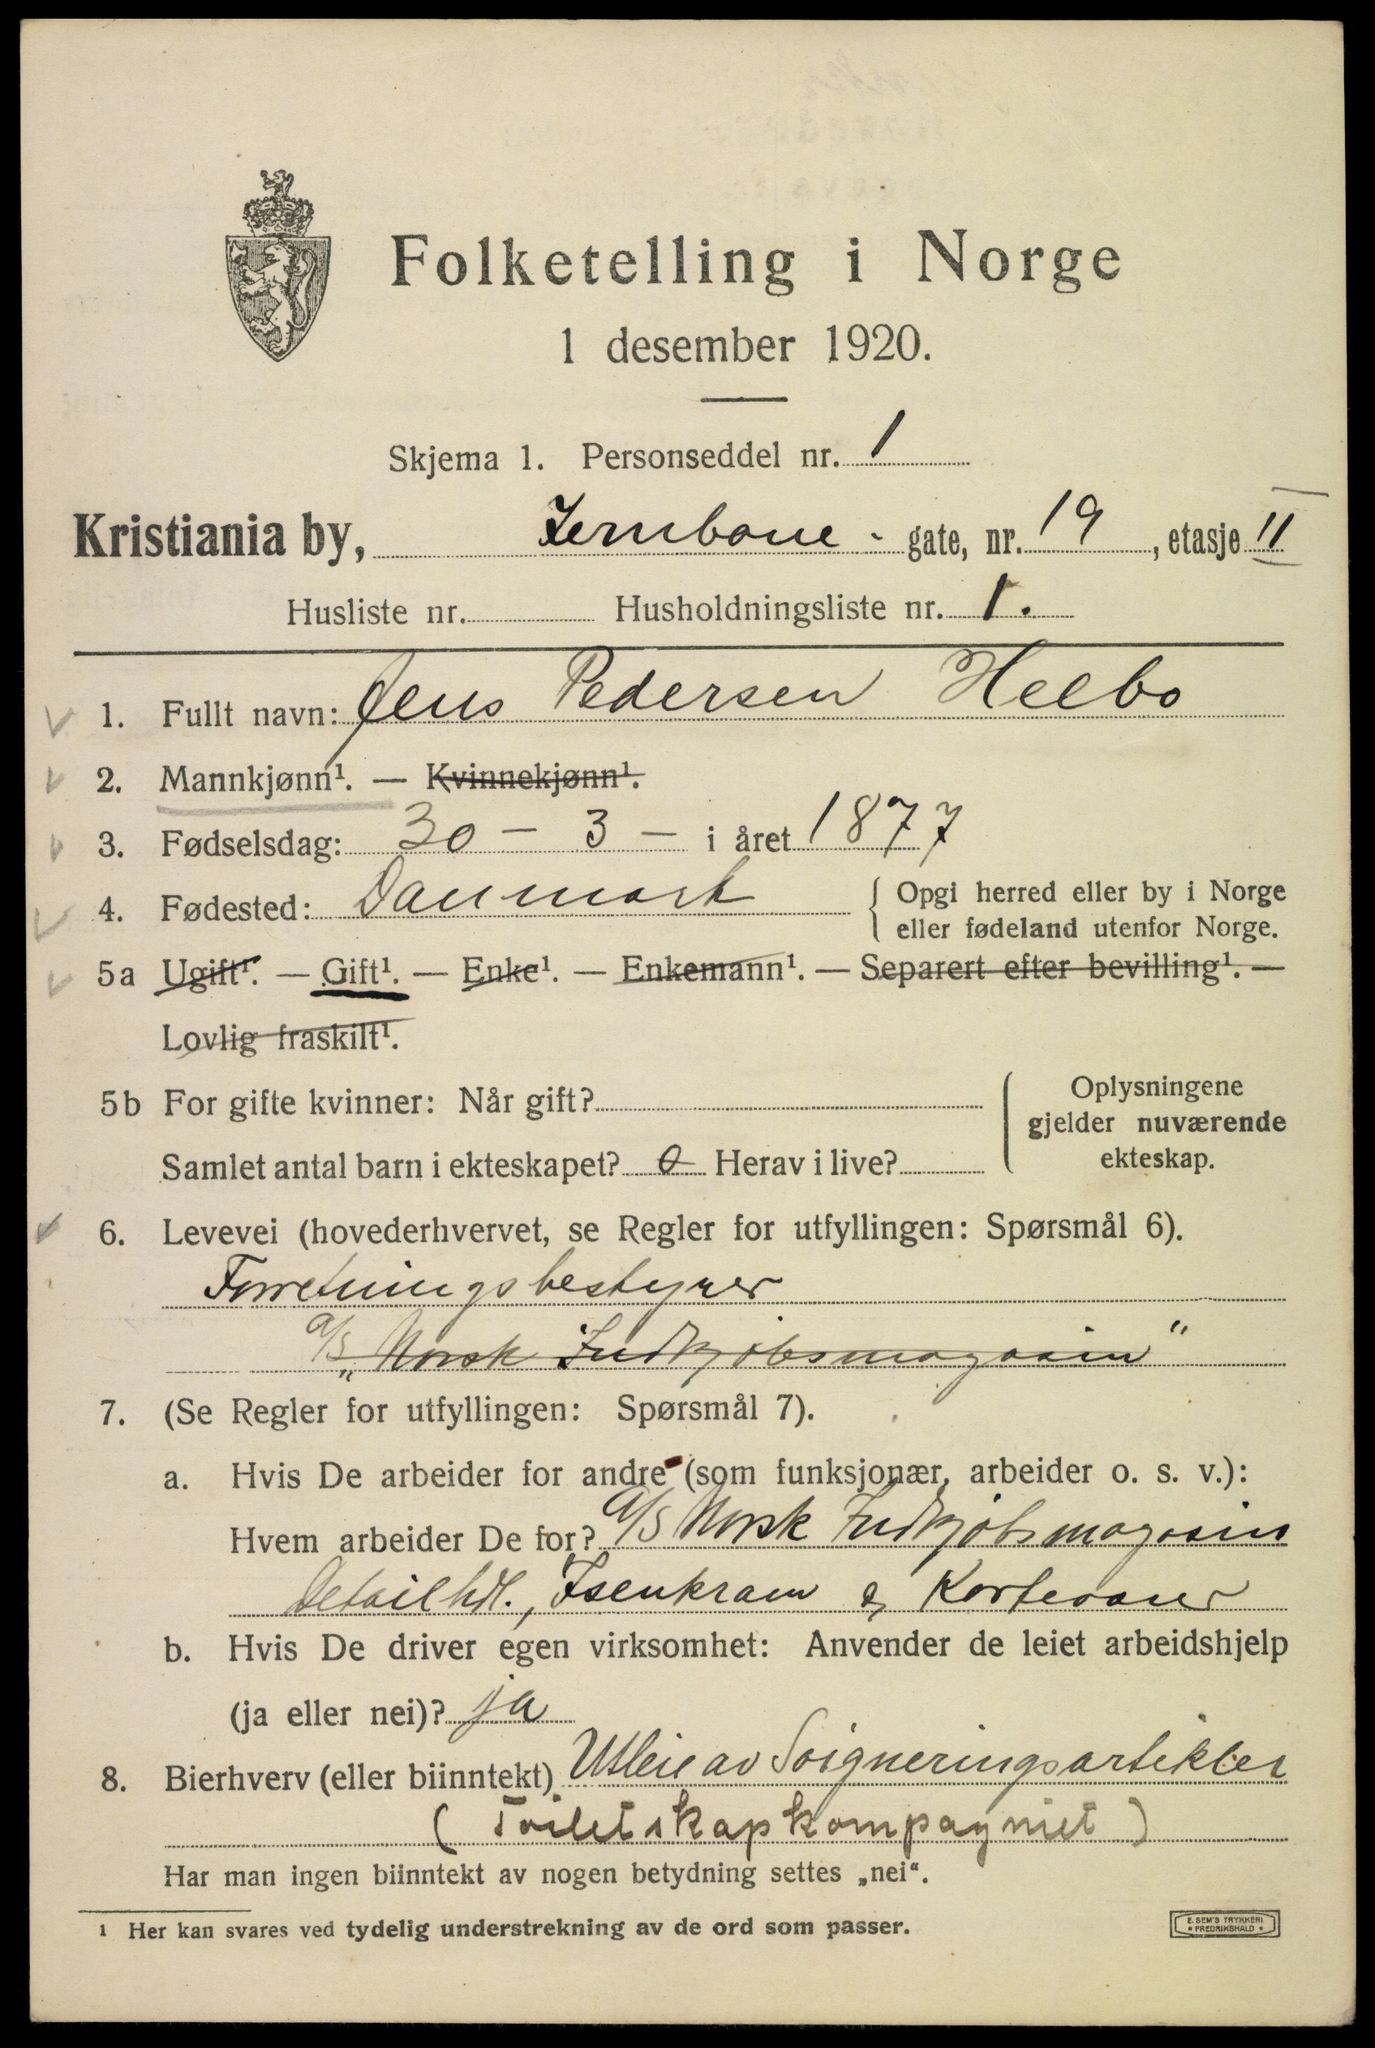 Folketelling i Norge
1 desember 1920.
Skjema 1. Personseddel nr. 1
Kristiania by, Jernbane - gate, nr. 19, etasje II
Husliste nr. Husholdningsliste nr. 1.
1. Fullt navn: Jens Pedersen Heebo
2. Mannkjønn¹. — Kvinnekjønn¹.
3. Fødselsdag: 30 - 3 - i året 1877
4. Fødested: Danmark { Opgi herred eller by i Norge
eller fødeland utenfor Norge.
5a Ugift¹. — Gift¹. — Enke¹. — Enkemann¹. — Separert efter bevilling¹. —
Lovlig fraskilt¹.
5b For gifte kvinner: Når gift? { Oplysningene
gjelder nuværende
ekteskap.
Samlet antal barn i ekteskapet? 0 Herav i live?
6. Levevei (hovederhvervet, se Regler for utfyllingen: Spørsmål 6).
Forretningsbestyrer
a/s „Norsk Indkjöbsmagasin"
7. (Se Regler for utfyllingen: Spørsmål 7).
a. Hvis De arbeider for andre (som funksjonær, arbeider o. s. v.):
Hvem arbeider De for? a/s Norsk Indkjöbsmagasin
Detailhdl., Isenkram & Kortevarer
b. Hvis De driver egen virksomhet: Anvender de leiet arbeidshjelp
(ja eller nei)? ja
8. Bierhverv (eller biinntekt) Utleie av Soigneringsartikler
(Toiletskapkompagniet)
Har man ingen biinntekt av nogen betydning settes „nei".
¹ Her kan svares ved tydelig understrekning av de ord som passer.
E. SEM'S TRYKKERI
* FREDRIKSHALD *